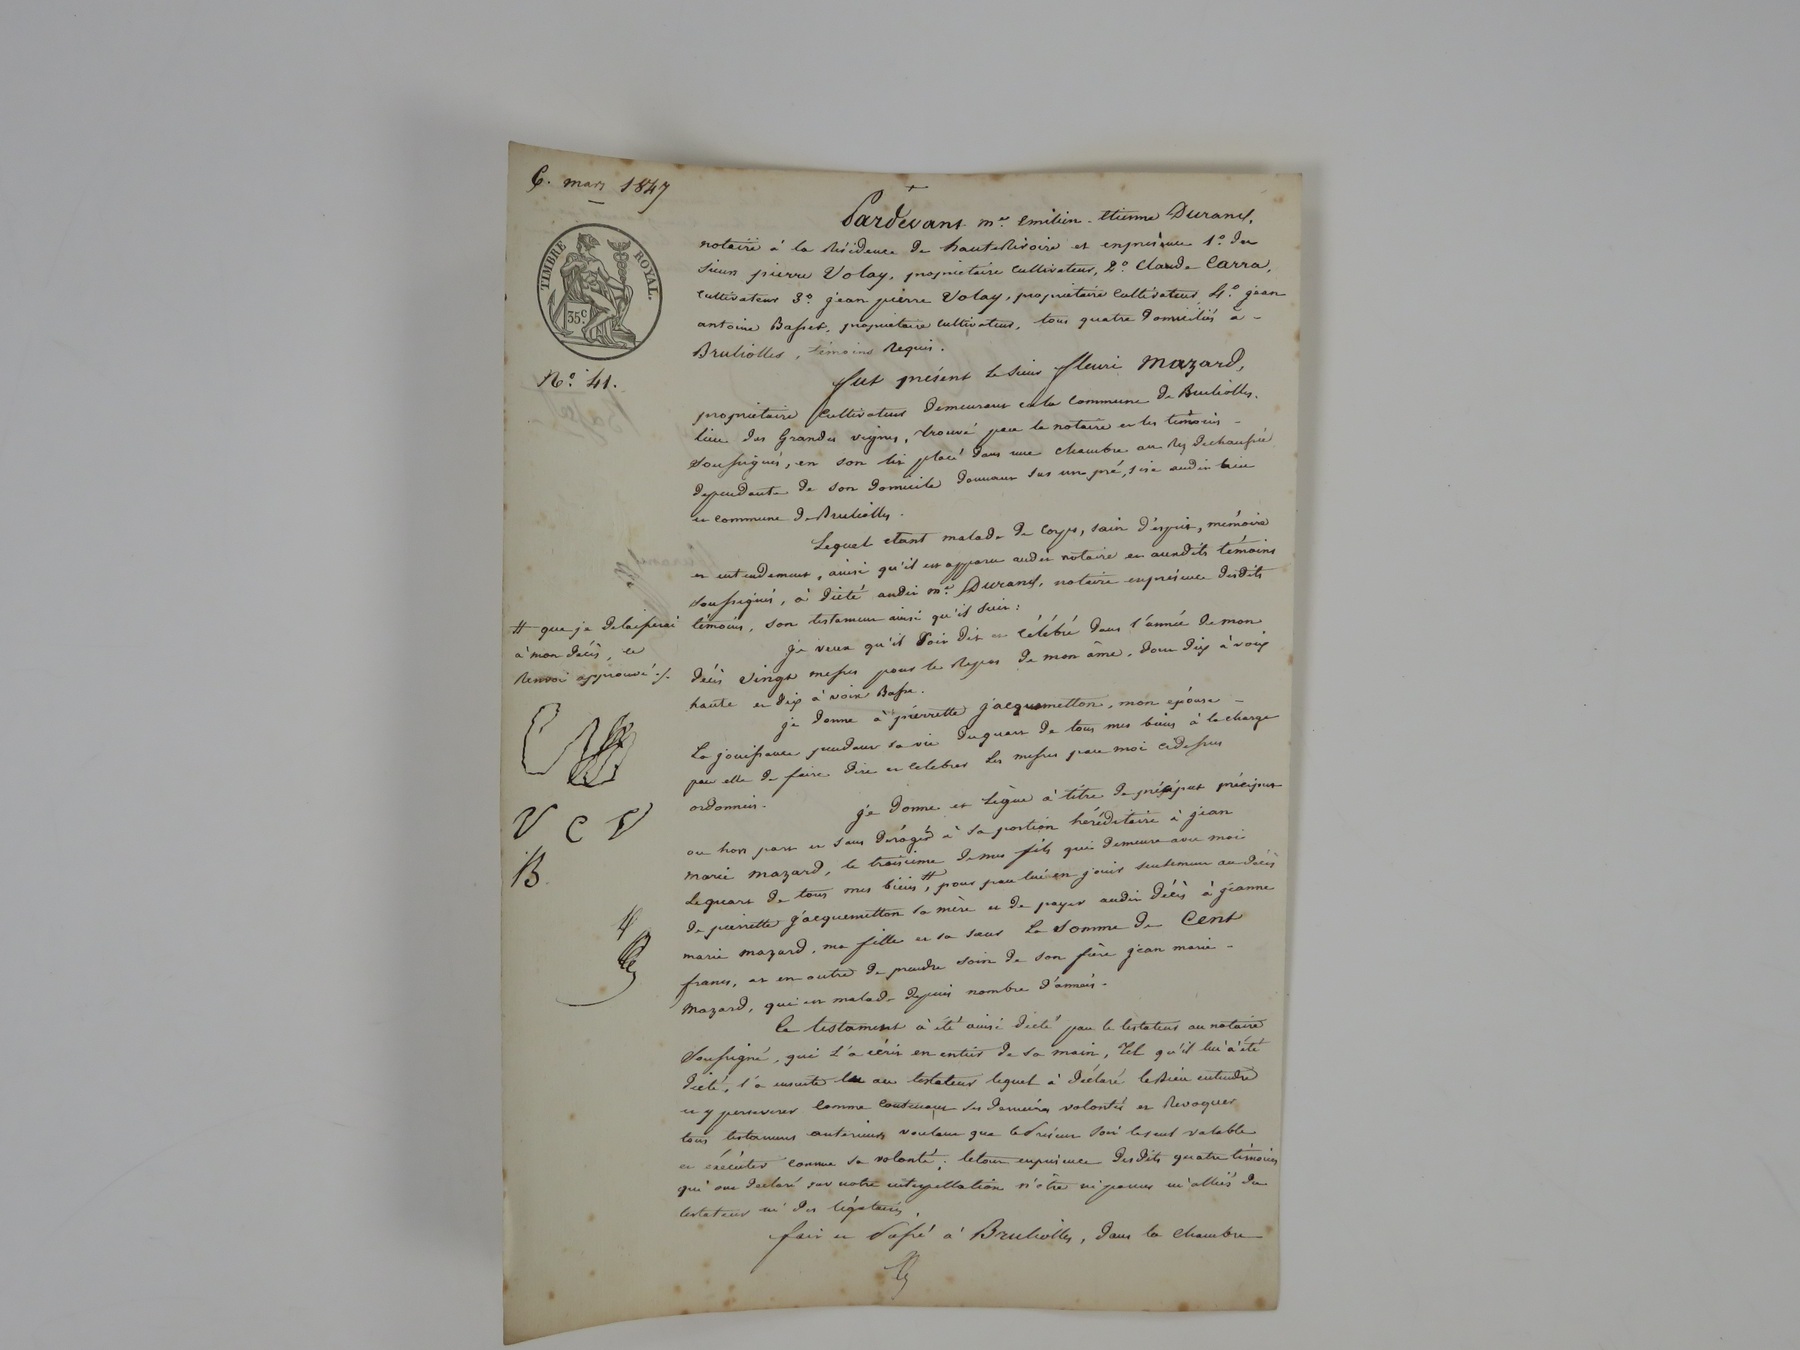 6. mars 1847
TIMBRE ROYAL.
35c.
N.º 41.
Pardevant me. emilien-etienne Durand,
notaire à la Résidence de hauteRivoire et enprésence 1.º du
sieur pierre Volay, propriétaire cultivateur, 2.º Claude Carra,
cultivateur 3.º jean pierre Volay, propriétaire cultivateur, 4.º jean
antoine Basset, propriétaire cultivateur, tous quatre domiciliés à -
Brulliolles, témoins Requis.
fut présent le sieur fleuri Mazard,
propriétaire cultivateur demeurant en la commune de Brulliolles,
lieu des Grandes vignes, trouvé par le notaire et les témoins -
soussignés, en son lit placé dans une chambre au Rez dechaussée
dependante de son domicile donnant sur un pré, sise audit lieu
et commune de Brulliolles.
Lequel etant malade de corps, sain d'esprit, mémoire
et entendement, ainsi qu'il est apparu audit notaire et auxdits témoins
soussignés, a dicté audit me. Durand, notaire enprésence desdits
témoins, son testament ainsi qu'il suit:
je veux qu'il soit dit et célébré dans l'année de mon
décès vingt messes pour le Repos de mon âme, dont dix à voix
haute et dix à voix Basse.
je donne à pierrette jacquemetton, mon epouse -
La jouissance pendant sa vie duquart de tous mes biens à la charge
par elle de faire dire et celebrer les messes par moi cidessus
ordonnées.
je donne et Lègue à titre de préciput
ou hors part et sans déroger à sa portion héréditaire à jean
marie mazard, le troisième de mes fils qui demeure avec moi
Lequart de tous mes biens #, pour par lui en jouir seulement au décès
de pierrette jacquemetton sa mère et de payer audit décès à jeanne
marie mazard, ma fille et sa sœur La Somme de Cent
francs, et en outre de prendre soin de son frère jean marie -
Mazard, qui est malade depuis nombre d'années.
Ce testament à été ainsi dicté par le testateur au notaire
Soussigné, qui L'a écrit en entier de sa main, tel qu'il lui à été
dicté, l'a ensuite lu au testateur lequel à déclaré leBien entendre
et y perseverer comme contenant ses dernières volontés et Revoquer
tous testaments antérieurs voulant que leprésent soit leseul valable
et exécuter comme sa volonté; letout enprésence desdits quatre témoins
qui ont déclaré sur notre interpellation n'être ni parents ni alliés du
testateur ni des légataires.
fait et Passé à Brulliolles, dans la chambre
# que je delaisserai
à mon décès, ce
Renvoi approuvé ./.
V C V
B.